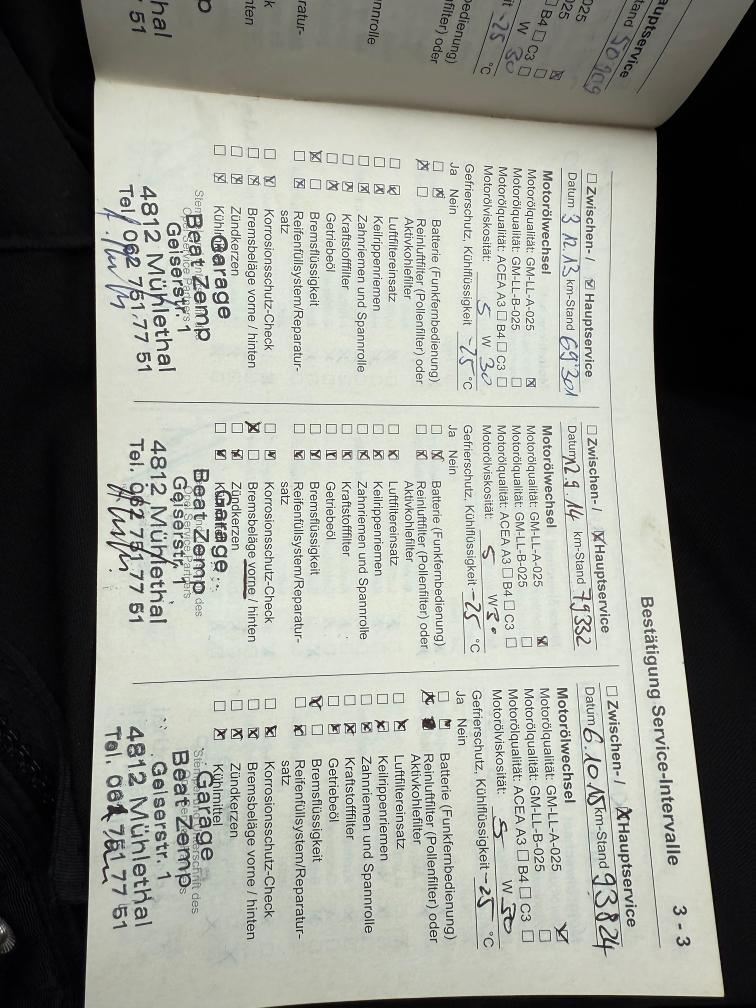 Bestätigung Service-Intervalle
3 - 3
☐ Zwischen- / ☒ Hauptservice
Datum 3 12.13 km-Stand 69301
Motorölwechsel
Motorölqualität: GM-LL-A-025 ☒
Motorölqualität: GM-LL-B-025 ☐
Motorölqualität: ACEA A3 ☐ B4 ☐ C3 ☐
Motorölviskosität: 5 W 30
Gefrierschutz, Kühlflüssigkeit -25 °C
Ja Nein
☐ ☒ Batterie (Funkfernbedienung)
☒ ☐ Reinluftfilter (Pollenfilter) oder
Aktivkohlefilter
☐ ☒ Luftfiltereinsatz
☐ ☒ Keilrippenriemen
☐ ☒ Zahnriemen und Spannrolle
☐ ☒ Kraftstofffilter
☐ ☒ Getriebeöl
☒ ☐ Bremsflüssigkeit
☐ ☒ Reifenfüllsystem/Reparatur-
satz
☐ ☒ Korrosionsschutz-Check
☐ ☒ Bremsbeläge vorne / hinten
☐ ☒ Zündkerzen
☐ ☒ Kühlmittel
Garage
Beat Zemp
Geiserstr. 1
4812 Mühlethal
Tel. 062 751 77 51
☐ Zwischen- / ☒ Hauptservice
Datum 12.9.14 km-Stand 79332
Motorölwechsel
Motorölqualität: GM-LL-A-025 ☒
Motorölqualität: GM-LL-B-025 ☐
Motorölqualität: ACEA A3 ☐ B4 ☐ C3 ☐
Motorölviskosität: 5 W 30
Gefrierschutz, Kühlflüssigkeit -25 °C
Ja Nein
☐ ☒ Batterie (Funkfernbedienung)
☐ ☒ Reinluftfilter (Pollenfilter) oder
Aktivkohlefilter
☐ ☒ Luftfiltereinsatz
☐ ☒ Keilrippenriemen
☐ ☒ Zahnriemen und Spannrolle
☐ ☒ Kraftstofffilter
☐ ☒ Getriebeöl
☐ ☒ Bremsflüssigkeit
☐ ☒ Reifenfüllsystem/Reparatur-
satz
☐ ☒ Korrosionsschutz-Check
☒ ☐ Bremsbeläge vorne / hinten
☐ ☒ Zündkerzen
☐ ☒ Kühlmittel
Garage
Beat Zemp
Geiserstr. 1
4812 Mühlethal
Tel. 062 751 77 51
☐ Zwischen- / ☒ Hauptservice
Datum 6.10.15 km-Stand 93824
Motorölwechsel
Motorölqualität: GM-LL-A-025 ☒
Motorölqualität: GM-LL-B-025 ☐
Motorölqualität: ACEA A3 ☐ B4 ☐ C3 ☐
Motorölviskosität: 5 W 30
Gefrierschutz, Kühlflüssigkeit -25 °C
Ja Nein
☐ ☒ Batterie (Funkfernbedienung)
☒ Reinluftfilter (Pollenfilter) oder
Aktivkohlefilter
☐ ☒ Luftfiltereinsatz
☐ ☒ Keilrippenriemen
☐ ☒ Zahnriemen und Spannrolle
☐ ☒ Kraftstofffilter
☐ ☒ Getriebeöl
☒ ☐ Bremsflüssigkeit
☐ ☒ Reifenfüllsystem/Reparatur-
satz
☐ ☒ Korrosionsschutz-Check
☐ ☒ Bremsbeläge vorne / hinten
☐ ☒ Zündkerzen
☐ ☒ Kühlmittel
Garage
Beat Zemp
Geiserstr. 1
4812 Mühlethal
Tel. 062 751 77 51